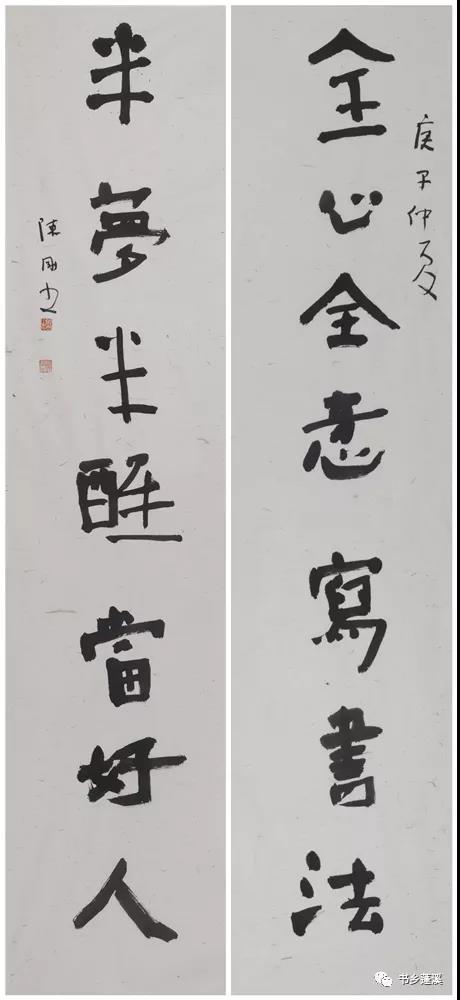 庚子仲夏
全心全意寫書法
半夢半醒當好人
陳
书乡蓬溪